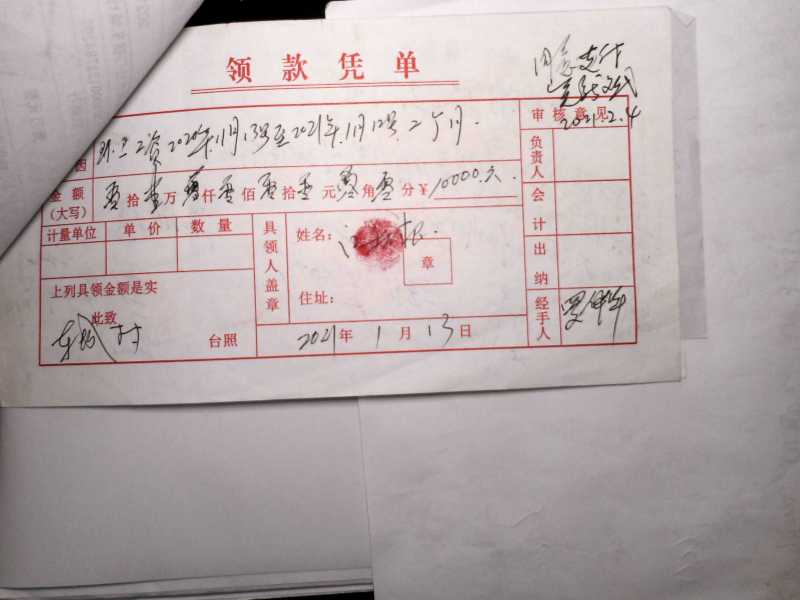 领款凭单
同意支付
2021.2.4
审核意见
因 环卫工资2020年11月13号至2021年1月12号.二个月.
金额(大写) 零拾壹万零仟零佰零拾零元零角零分 ¥10000.元.
计量单位 单价 数量
具领人盖章
姓名:
章
住址:
上列具领金额是实
此致
村 台照
2021年1月13日
负责人
会计
出纳
经手人